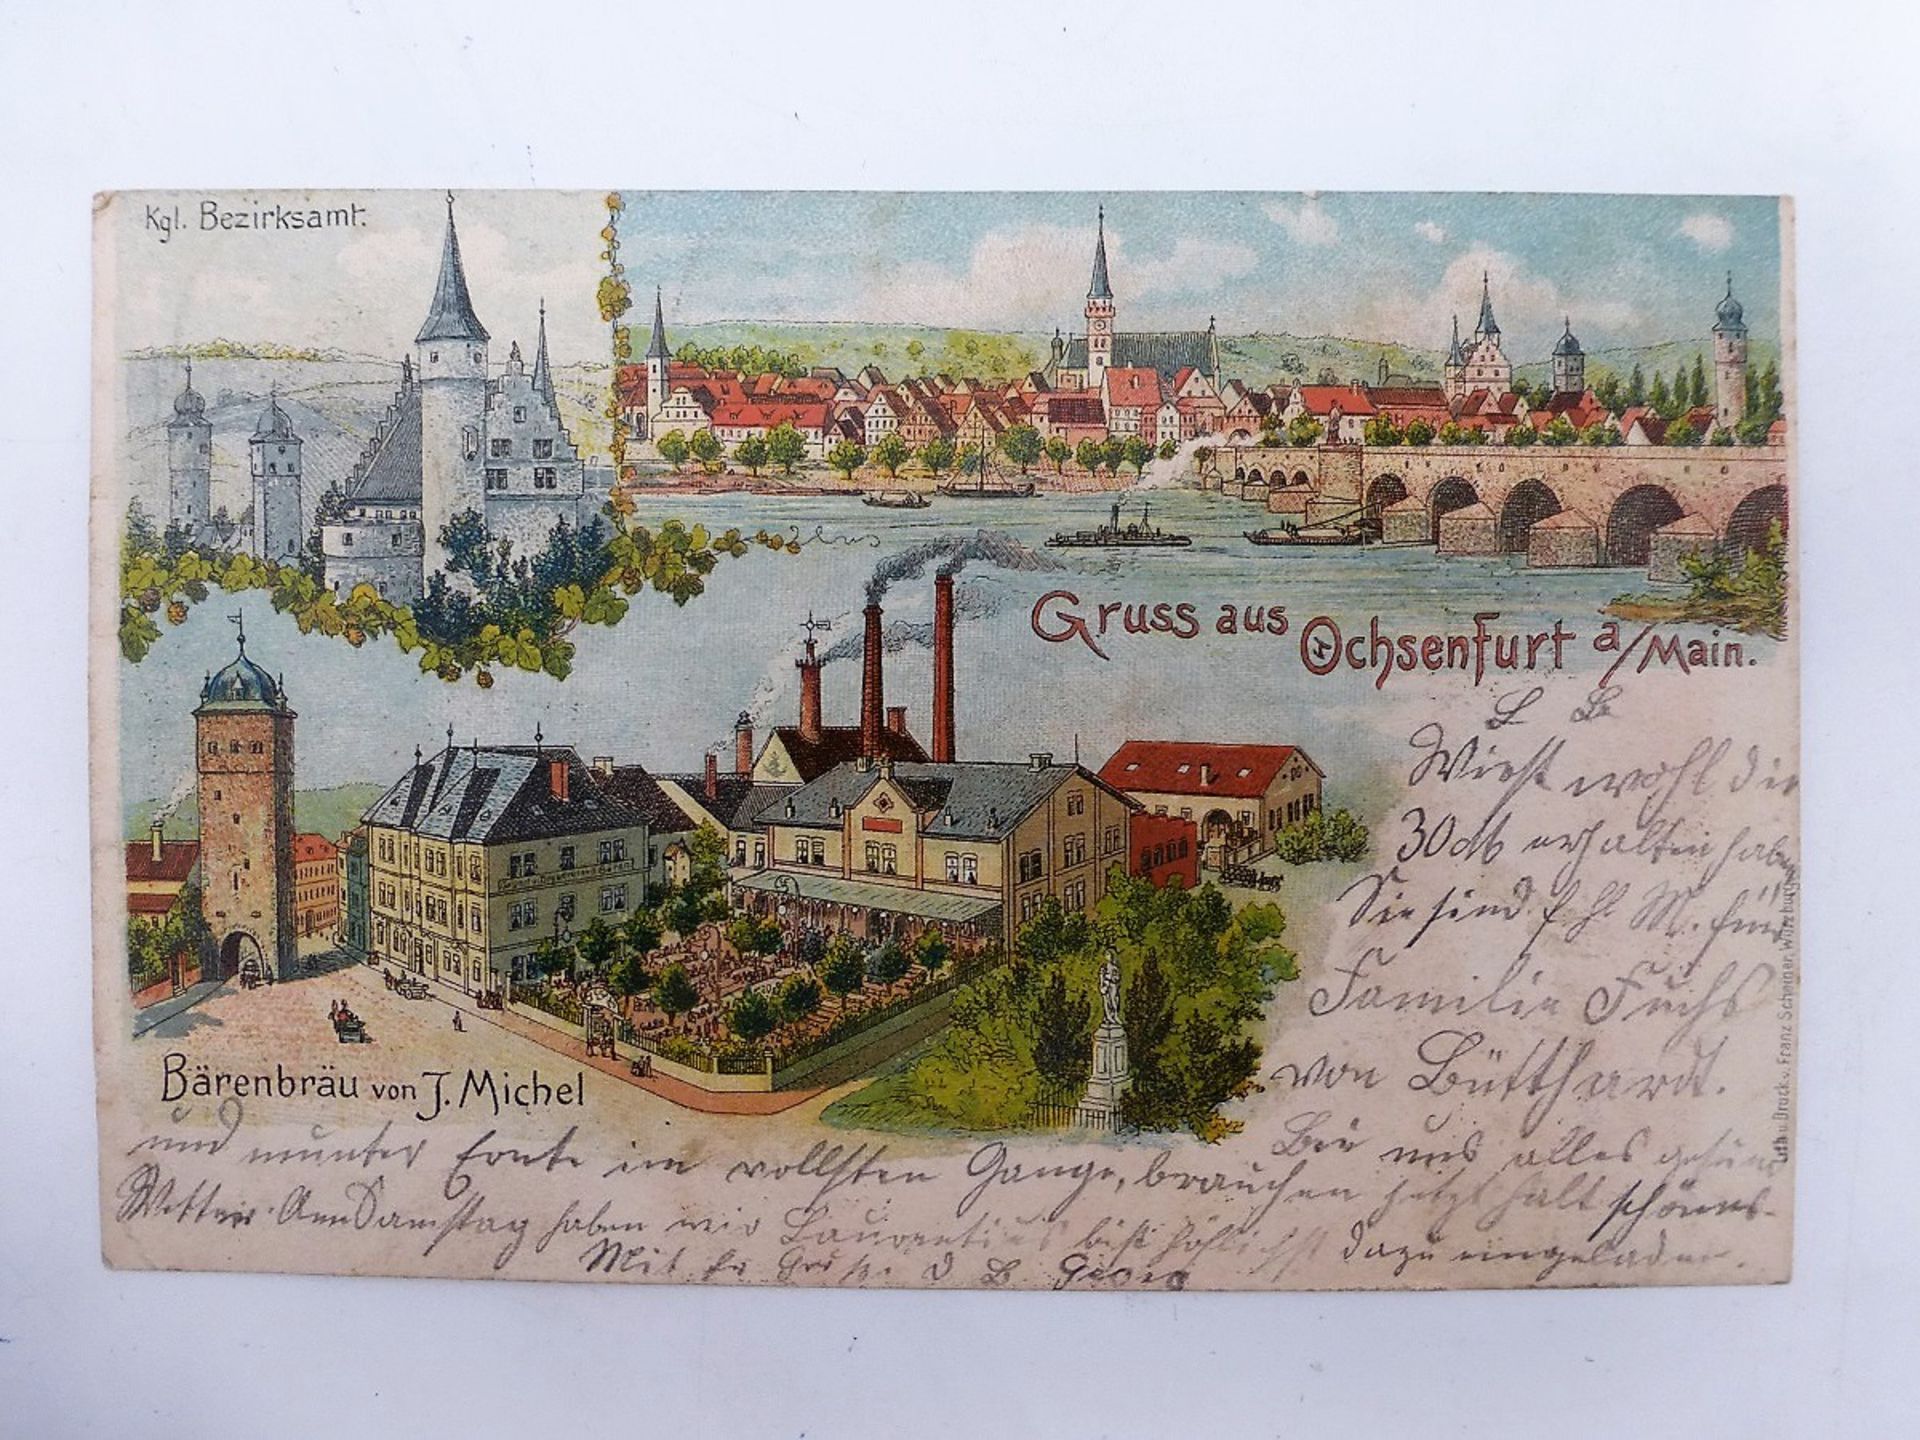 Kgl. Bezirksamt.
Gruss aus Ochsenfurt a/Main.
Bärenbräu von J. Michel
L B
Wirst wohl die
30 M erhalten haben
Sie sind f. H. M. für
Familie Fuchs
von Bütthardt.
Bei uns alles gesund
und munter Ernte im vollsten Gange, brauchen jetzt halt schönes
Wetter. Am Samstag haben wir Laurentius bist höflichst dazu eingeladen.
Mit Gruß. d B Georg
Lith. u. Druck v. Franz Scheiner, Würzburg